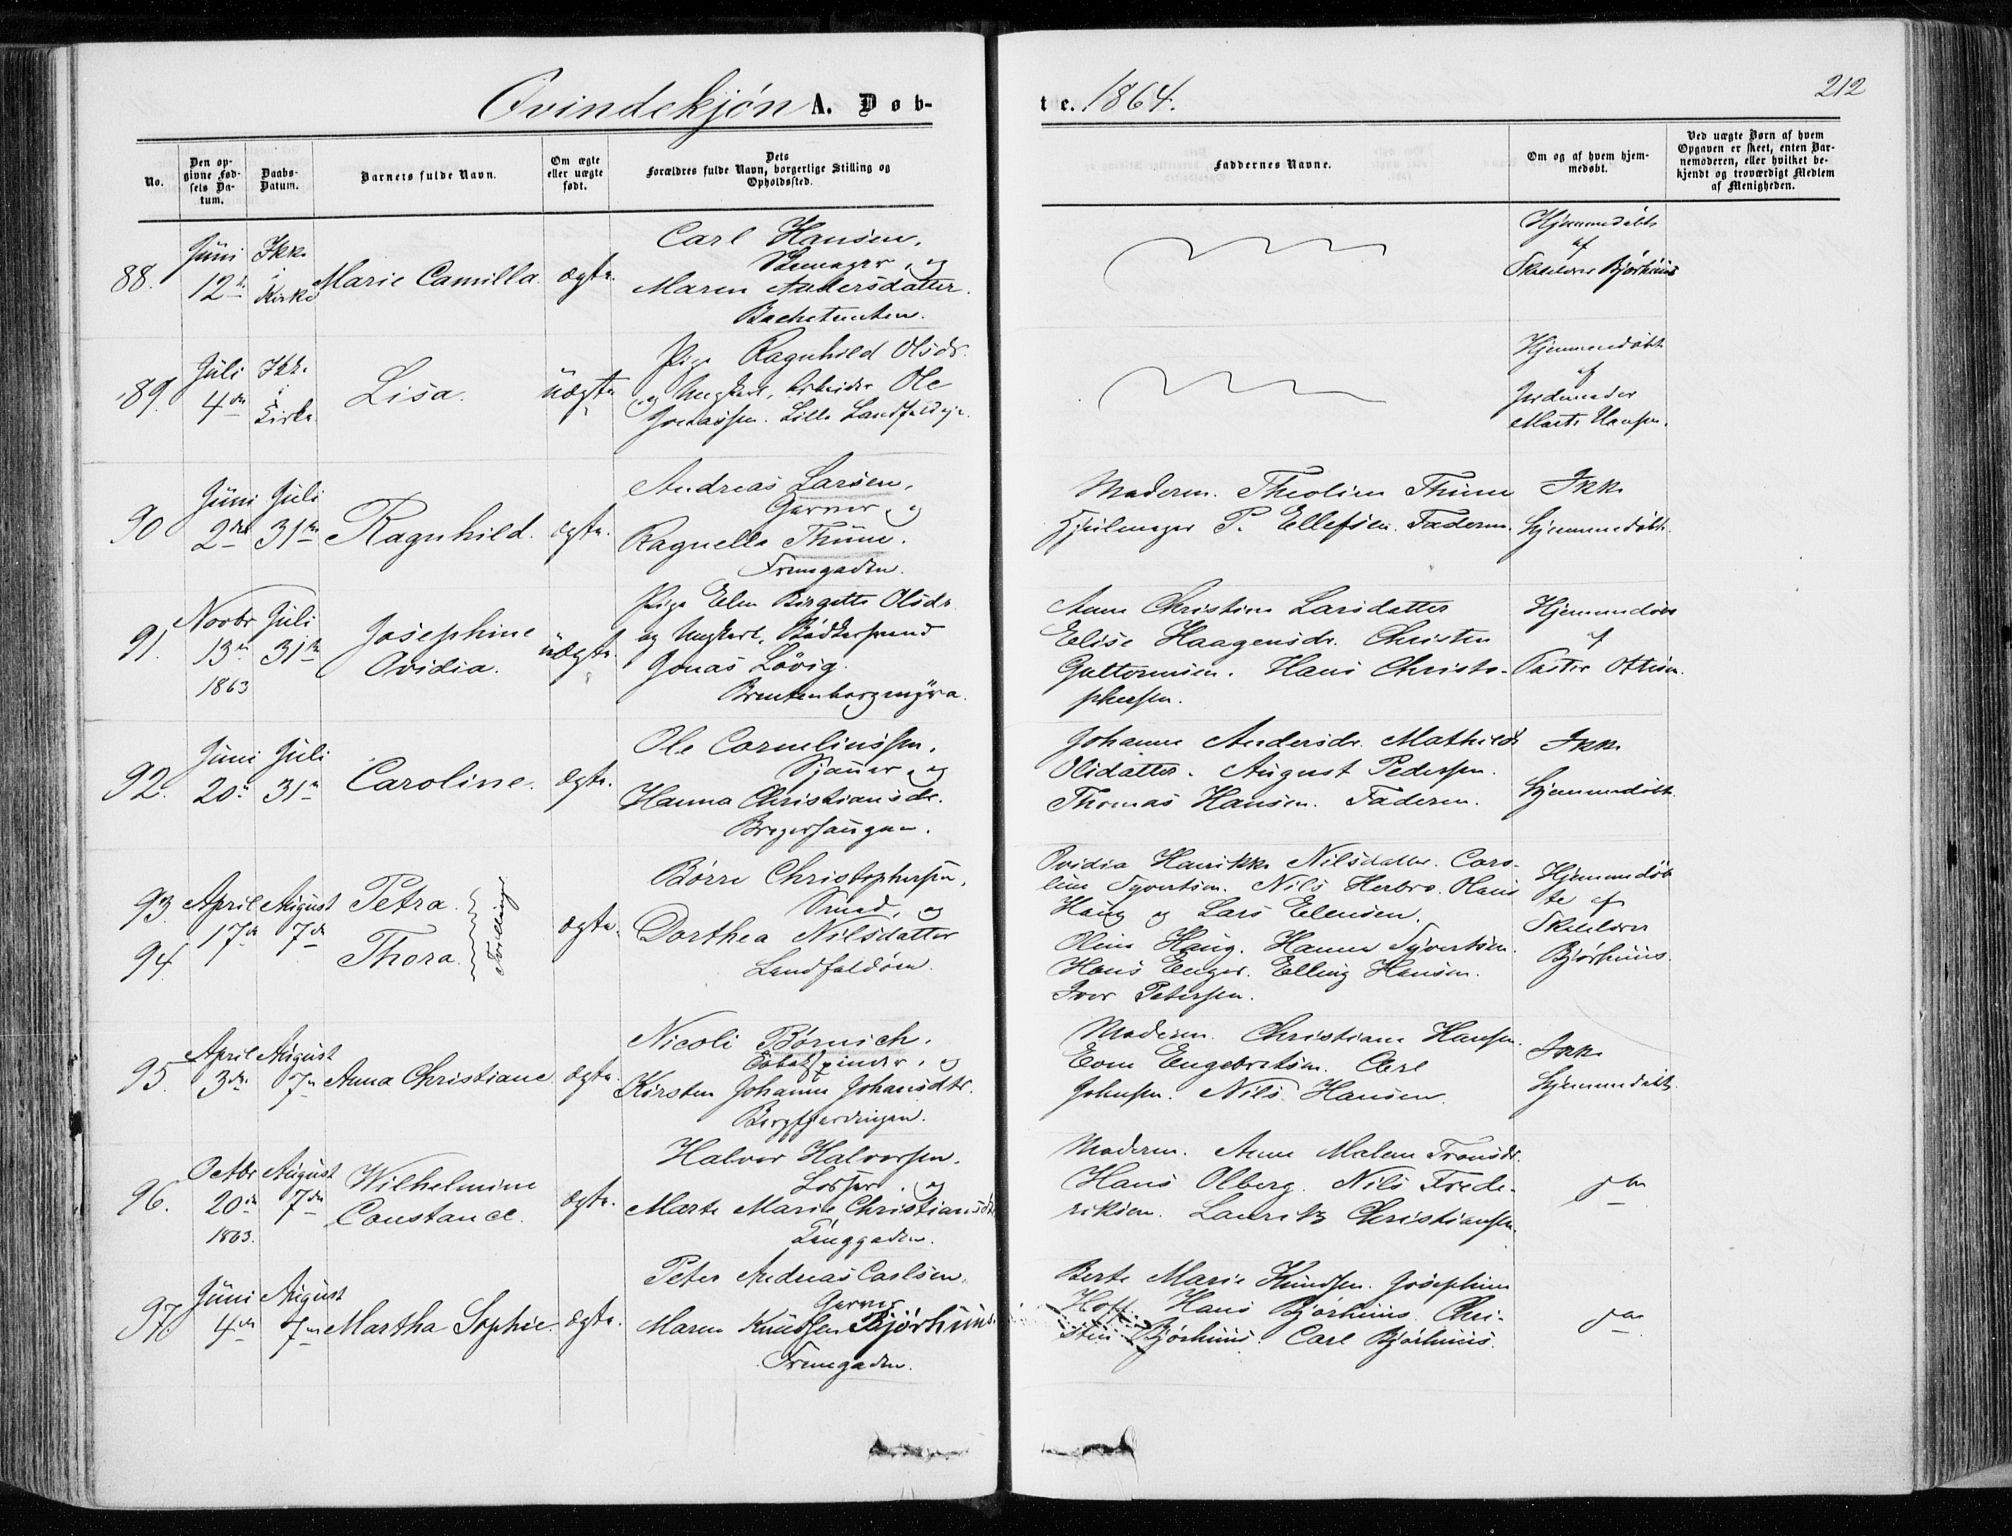 Qvindekjøn A. Døb-
te. 1864.
212
No.
Den op-
givne Fød-
sels Da-
tum.
Daabs-
Datum.
Barnets fulde Navn.
Om ægte
eller uægte
født.
Dets
Forældres fulde Navn, borgerlige Stilling og
Opholdssted.
Faddernes Navne.
Om og af hvem hjem-
medøbt.
Ved uægte Børn af hvem
Opgaven er skeet, enten Bar-
nemoderen, eller hvilket be-
kjendt og troværdigt Medlem
af Menigheden.
88.
Juni
12te
Ikke
i
Kirke
Marie Camilla.
ægte.
Carl Hansen,
og
Maren Andersdatter.
Hjemmedøbt
af
Skolelærer Bjørhuus
89.
Juli
4de
Ikke
i
Kirke
Lisa.
Uægte
Pige Ragnhild Olsdr.
og Ungkarl, Arbeider Ole
Jonassen. Lille Landfaldøie.
Hjemmedøbt
af
Jordemoder
Marte Hansen.
90
Juni
2den
Juli
31te
Ragnhild.
ægte.
Andreas Larsen,
Garver, og
Ragnella Thune.
Tverrgaden.
Moderen. Theoline Thune
Hjulmager P. Ellefsen. Faderen.
Ikke
hjemmedøbt.
91.
Novbr
13de
1863
Juli
31te
Josephine
Ovidia.
uægte.
Pige Elen Birgette Olsdr.
og Ungkarl, Bødkersvend
Jonas Løvig.
Brentenborgmyra.
Anne Christine Larsdatter
Elise Haagensdr. Christen
Guttormsen. Hans Christo-
phersen.
Hjemmedøbt
af
Pastor Ottesen.
92.
Juni
20de
Juli
31te
Caroline.
ægte.
Ole Corneliussen,
og
Hanna Christiansdr.
Brageshaugen.
Johanne Andersdr. Mathilde
Olsdatter. August Pedersen.
Thomas Hansen. Faderen.
Ikke
hjemmedøbt.
93.
94.
April
17de
August
7de
Petra.
Thora.
Tvillinger
ægte.
Børre Christophersen,
Smed, og
Dorthea Nilsdatter
Landfaldøen.
Ovidia Henrikke Nilsdatter. Caro-
line Syvertsen. Nils Herbro. Hans
Haug og Lars Ellensen.
Oline Haug. Hanna Syvertsen.
Hans Enger. Elling Hansen.
Iver Petersen.
Hjemmedøb-
te af
Skolelærer
Bjørhuus.
95.
April
3de
August
7de
Anna Christiane
ægte.
Nicoli Børnich,
Tobakspinder, og
Kirsten Johanne Johansdtr.
Bergfjerdingen.
Moderen. Christiane Hansen.
Even Engebretsen. Carl
Johnsen. Nils Hansen.
Ikke
hjemmedøbt.
96.
Octbr
20de
1863.
August
7de
Wilhelmine
Constance.
ægte.
Halvor Halvorsen,
Losser, og
Marte Marie Christiansdtr
Langgaden.
Moderen. Anne Malene Tronsdr.
Hans Olberg. Nils Frede-
riksen. Lauritz Christiansen.
97.
Juni
4de
August
7de
Martha Sophie.
ægte.
Peter Andreas Carlsen,
Garver
Maren Knudsen Bjørhuus.
Tverrgaden.
Berte Marie Knudsen. Josephine
Hoff. Hans Bjørhuus. Chri-
stin Bjørhuus. Carl Bjørhuus.